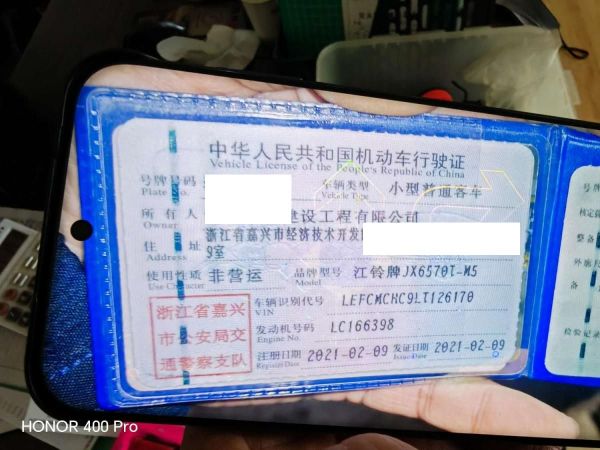 中华人民共和国机动车行驶证
Vehicle License of the People's Republic of China
号牌号码 车辆类型 小型普通客车
Plate No. Vehicle Type
所有人 建设工程有限公司
Owner
住址 浙江省嘉兴市经济技术开发
Address 9室
使用性质 非营运 品牌型号 江铃牌JX6570T-M5
Use Character Model
浙江省嘉兴
市公安局交
通警察支队
车辆识别代号 LEFCMCHC9LT126170
VIN
发动机号码 LC166398
Engine No.
注册日期 2021-02-09 发证日期 2021-02-09
Register Date Issue Date
号
核定
整备
外廓
备
检验记录
HONOR 400 Pro